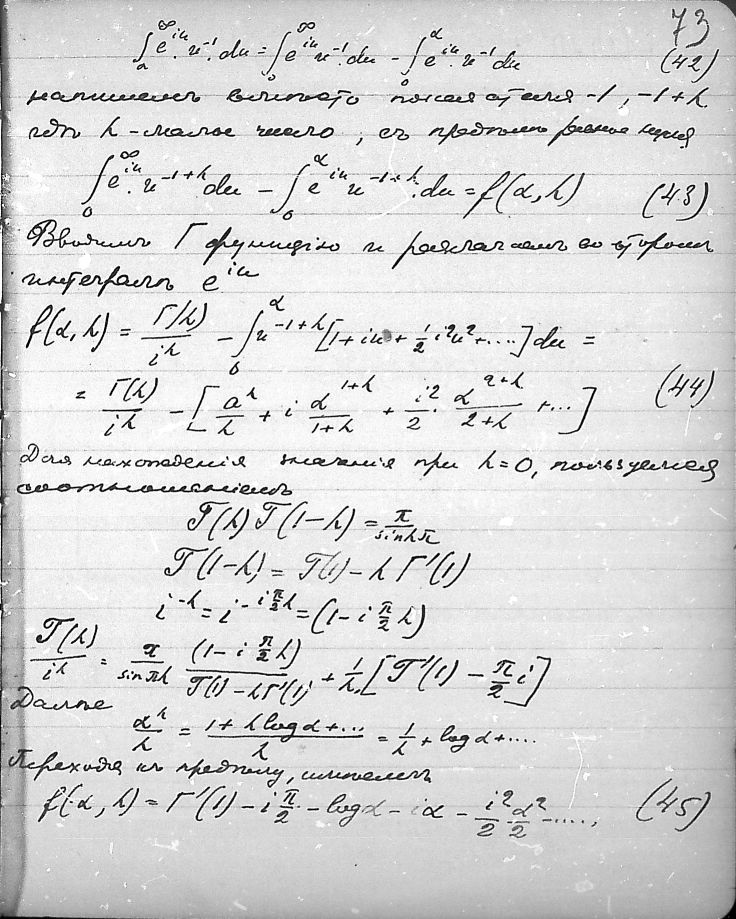 73
∫_α^∞ e^{iu}. u^{-1}. du = ∫_0^∞ e^{iu} u^{-1}. du - ∫_0^α e^{iu}. u^{-1} du (42)
напишемъ вмѣсто показателя -1, -1+h
гдѣ h - малое число,
∫_0^∞ e^{iu}. u^{-1+h} du - ∫_0^α e^{iu} u^{-1+h}. du = f(α, h) (43)
Вводимъ Γ функцію и разлагаемъ во второмъ
интегралѣ e^{iu}
f(α, h) = Γ(h)/i^h - ∫_0^α u^{-1+h} [1 + iu + 1/2 i²u² + ....] du =
= Γ(h)/i^h - [α^h/h + i α^{1+h}/1+h + i²/2 . α^{2+h}/2+h + ...] (44)
Для нахожденія значенія при h=0, пользуемся
соотношеніемъ
Γ(h) Γ(1-h) = π/sin hπ
Γ(1-h) = Γ(1) - h Γ'(1)
i^{-h} = i^{-i π/2 h} = (1 - i π/2 h)
Γ(h)/i^h = π/sin πh (1 - i π/2 h)/Γ(1) - hΓ'(1) + 1/h [Γ'(1) - π/2 i]
Далѣе
α^h/h = 1 + h log α + .../h = 1/h + log α + ....
Переходя къ предѣлу, имѣемъ
f(α, h) = Γ'(1) - i π/2 - log α - iα - i²/2 α²/2 - ...., (45)